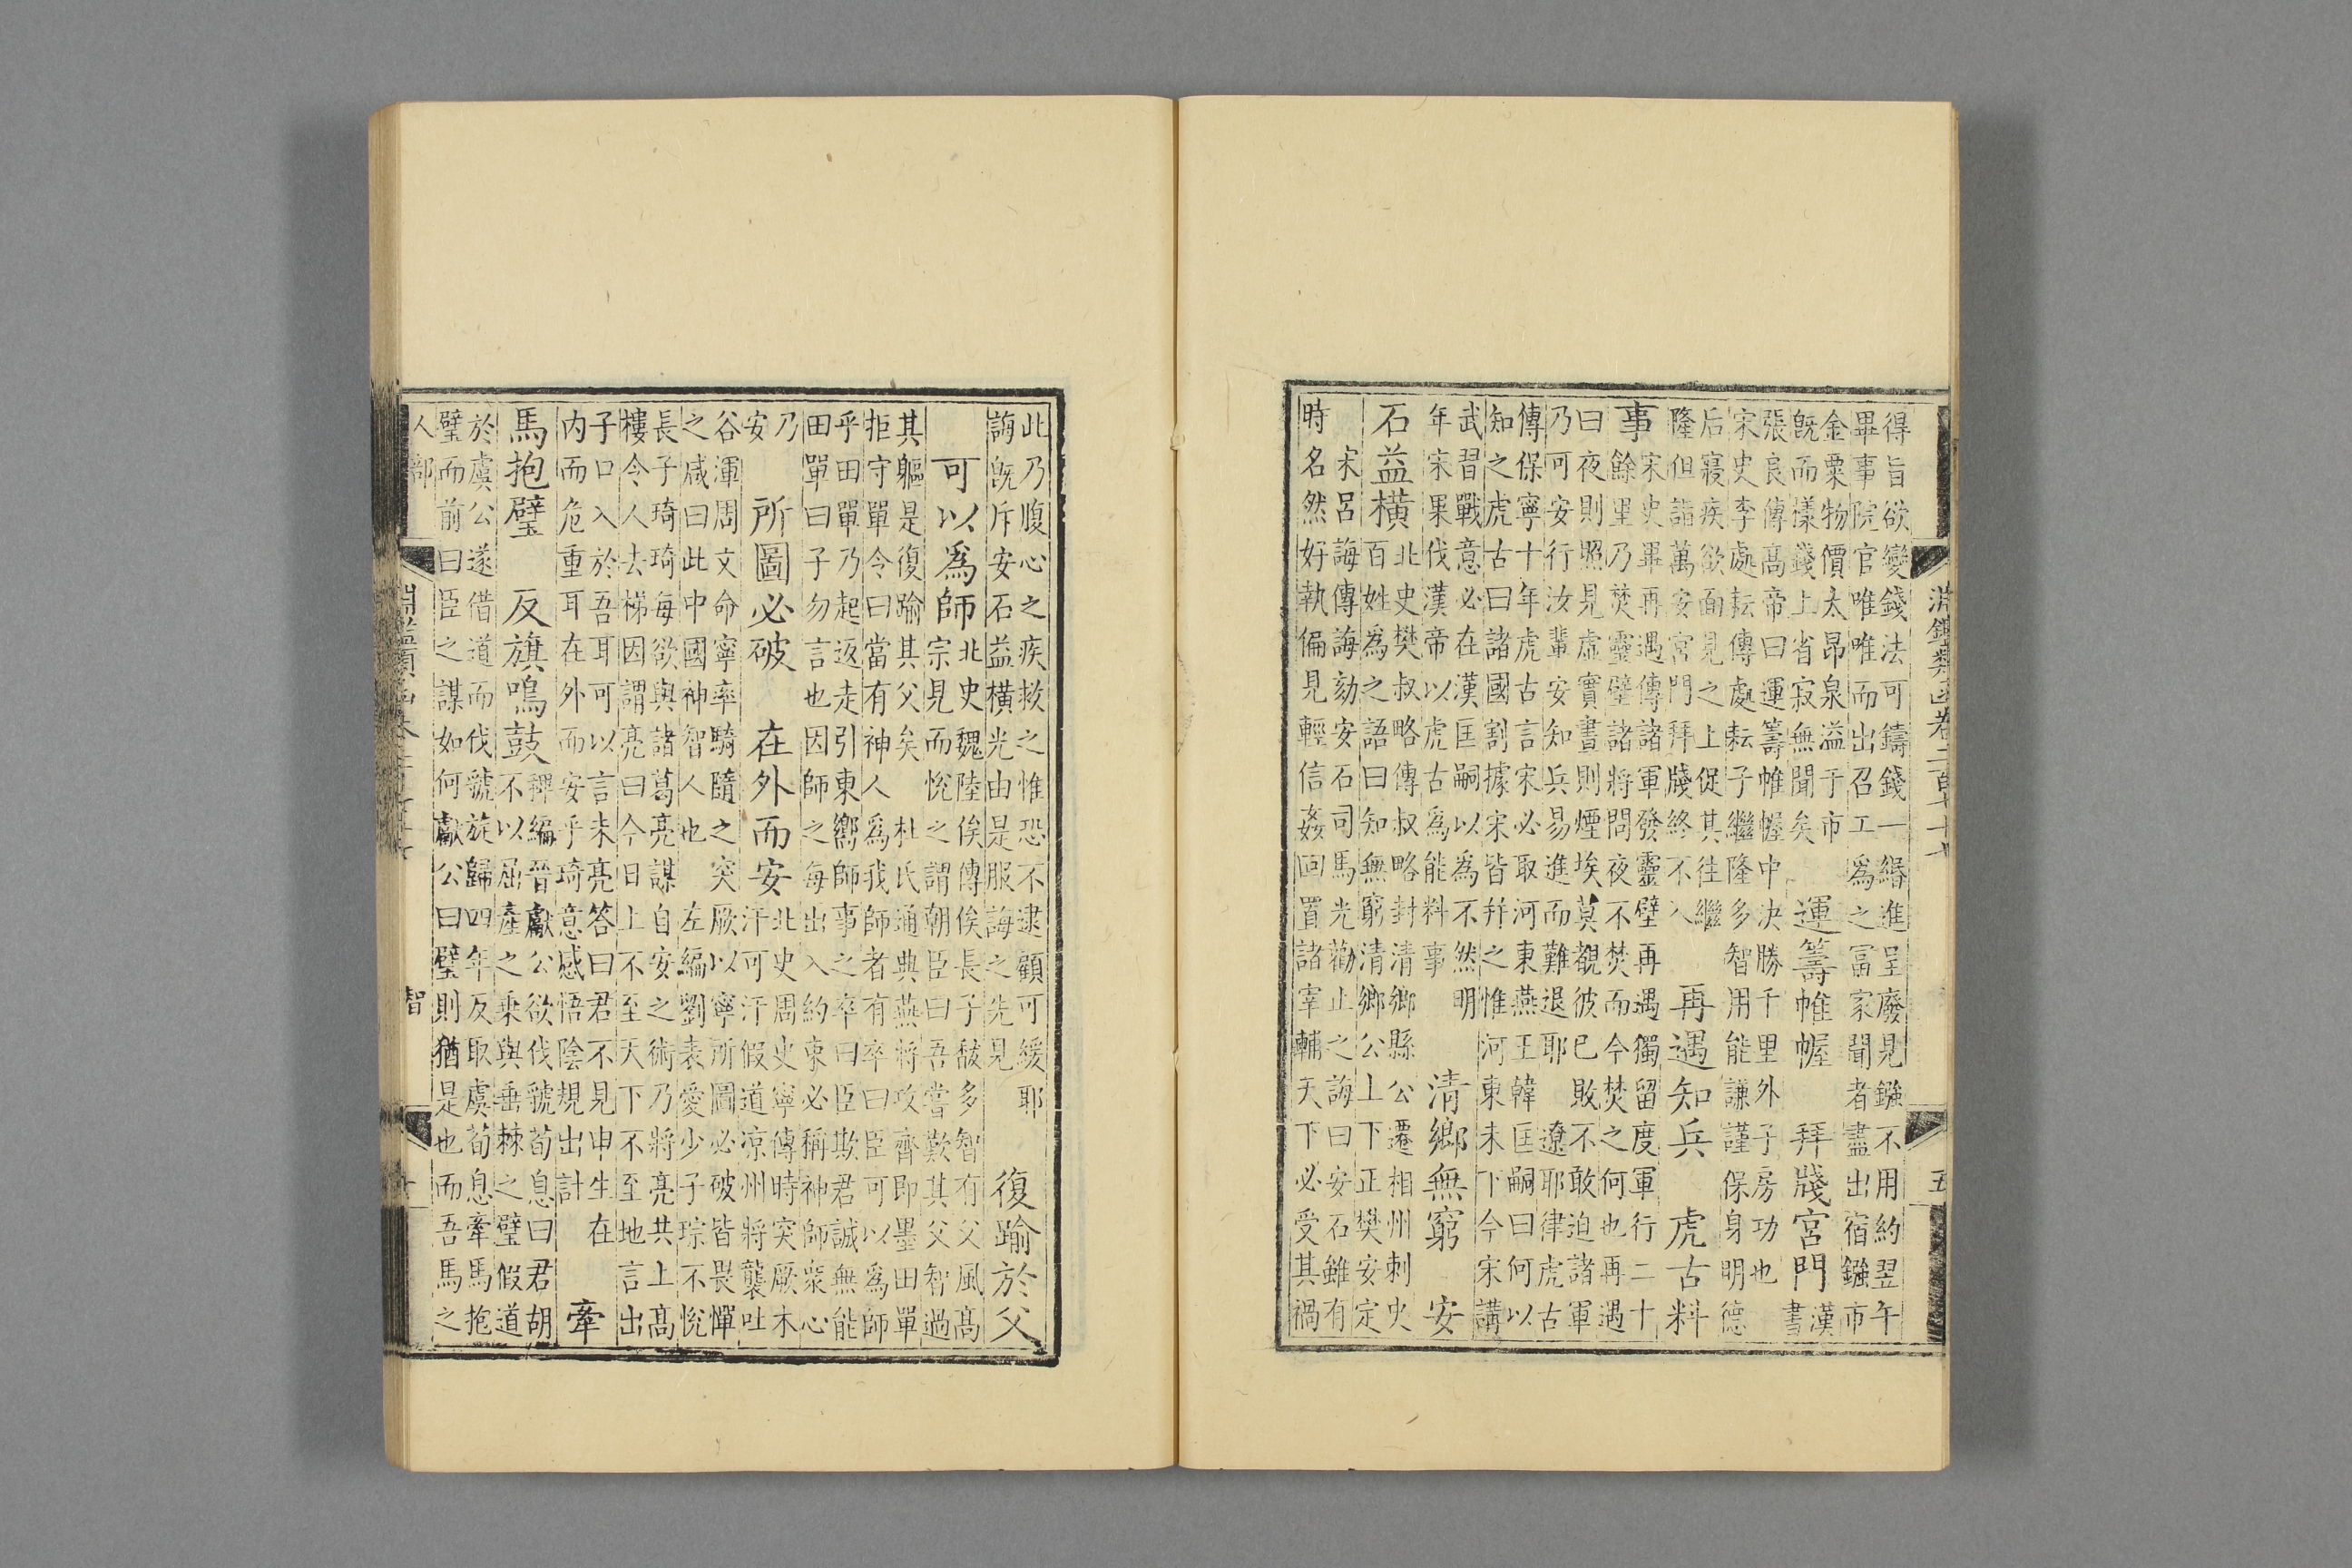 淵鑑類函卷二百七十七 五
得旨欲變錢法可鑄錢一緡進呈廢見鏹不用約翌午
畢事院官唯唯而出召工為之富家聞者盡出宿鏹市
金粟物價太昂泉溢于市
旣而樣錢上省寂無聞矣
運籌帷幄 拜牋宮門
漢
書
張良傳高帝曰運籌帷幄中决勝千里外子房功也
宋史李處耘傳處耘子繼隆多智用能謙謹保身明德
后寢疾欲面見之上促其往繼
隆但詣萬安宮門拜牋終不入
再遇知兵 虎古料
事
宋史畢再遇傳諸軍發靈壁再遇獨留度軍行二十
餘里乃焚靈壁諸將問夜不焚而今焚之何也再遇
曰夜則照見虛實晝則煙埃莫覩彼已敗不敢迫諸軍
乃可安行汝輩安知兵易進而難退耶 遼耶律虎古
傳保寧十年虎古言宋必取河東燕王韓匡嗣曰何以
知之虎古曰諸國割據宋皆并之惟河東未下今宋講
武習戰意必在漢匡嗣以為不然明
年宋果伐漢帝以虎古為能料事
清鄉無窮 安
石益橫
北史樊叔略傳叔略封清鄉縣公遷相州刺史
百姓為之語曰知無窮清鄉公上下正樊安定
宋呂誨傳誨劾安石司馬光勸止之誨曰安石雖有
時名然好執偏見輕信姦回置諸宰輔天下必受其禍
此乃腹心之疾救之惟恐不逮顧可緩耶
誨旣斥安石益橫光由是服誨之先見
復踰於父
可以為師
北史魏陸俟傳俟長子馛多智有父風高
宗見而悅之謂朝臣曰吾嘗歎其父智過
其軀是復踰其父矣 杜氏通典燕將攻齊即墨田單
拒守單令曰當有神人為我師者有卒曰臣可以為師
乎田單乃起返走引東嚮師事之卒曰臣欺君誠無能
田單曰子勿言也因師之每出入約束必稱神師衆心
乃
安
所圖必破 在外而安
北史周史寧傳時突厥木
汗可汗假道涼州將襲吐
谷渾周文命寧率騎隨之突厥以寧所圖必破皆畏憚
之咸曰此中國神智人也 左編劉表愛少子琮不悅
長子琦琦每欲與諸葛亮謀自安之術乃將亮共上高
樓令人去梯因謂亮曰今日上不至天下不至地言出
子口入於吾耳可以言未亮答曰君不見申生在
内而危重耳在外而安乎琦意感悟陰規出計
牽
馬抱璧 反旗鳴鼓
稗編晉獻公欲伐虢荀息曰君胡
不以屈產之乘與垂棘之璧假道
於虞公遂借道而伐虢旋歸四年反取虞荀息牽馬抱
璧而前曰臣之謀如何獻公曰璧則猶是也而吾馬之
人部 智